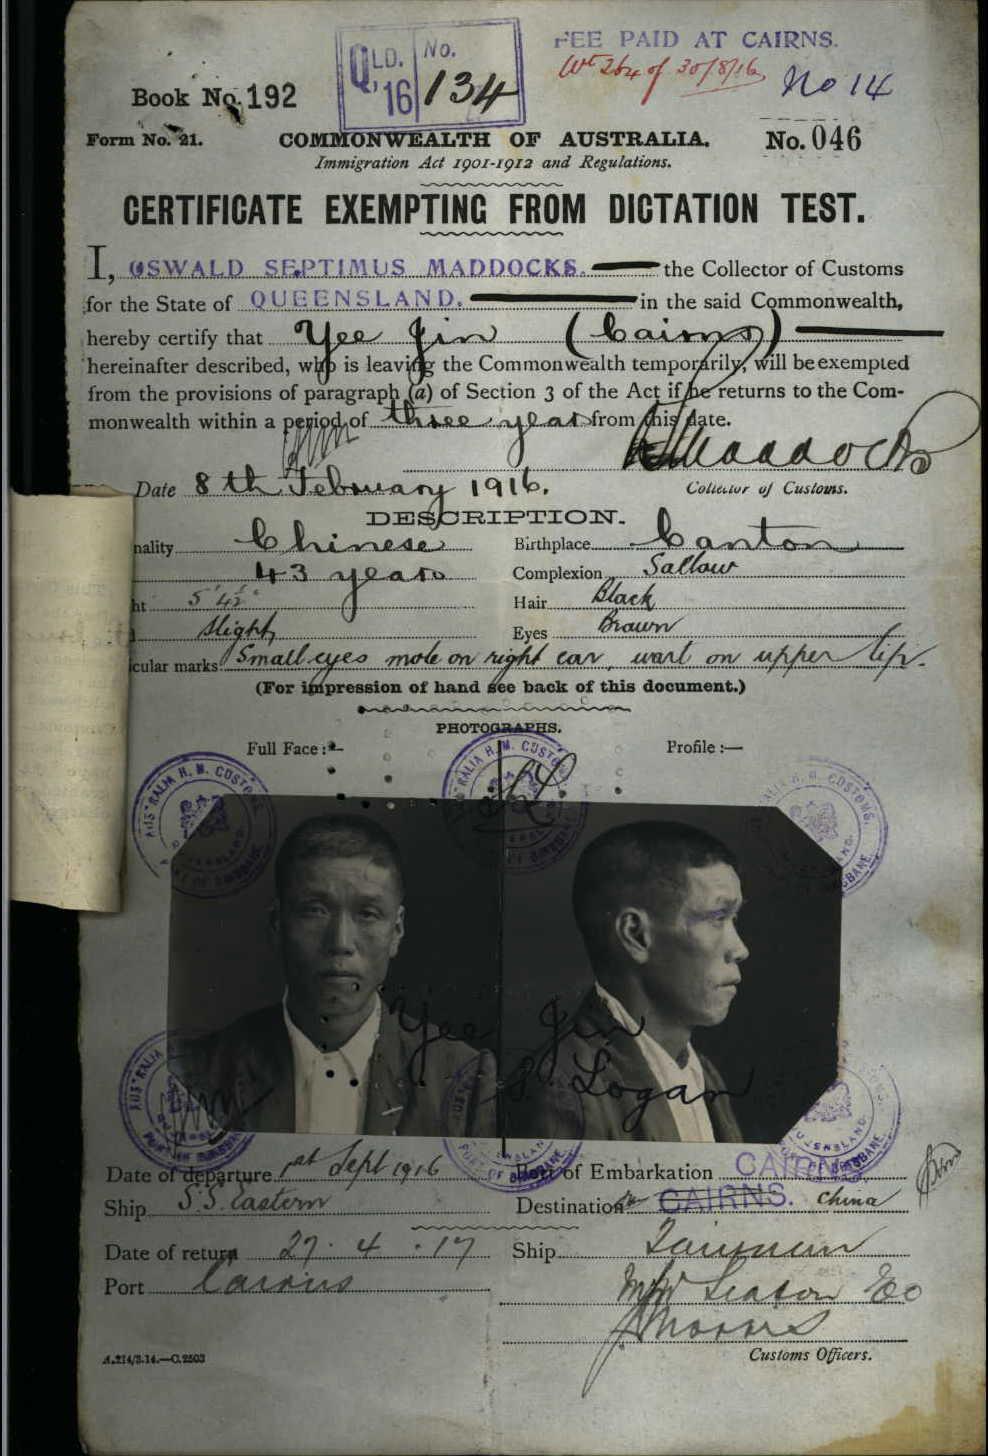 QLD. No.
'16 134
FEE PAID AT CAIRNS.
of 30/8/16
No 14
Book No. 192
Form No. 21. COMMONWEALTH OF AUSTRALIA. No. 046
Immigration Act 1901-1912 and Regulations.
CERTIFICATE EXEMPTING FROM DICTATION TEST.
I, OSWALD SEPTIMUS MADDOCKS. the Collector of Customs
for the State of QUEENSLAND. in the said Commonwealth,
hereby certify that Yee Jin (Cairns)
hereinafter described, who is leaving the Commonwealth temporarily, will be exempted
from the provisions of paragraph (a) of Section 3 of the Act if he returns to the Com-
monwealth within a period of three years from this date.
Maddocks
Date 8th February 1916. Collector of Customs.
DESCRIPTION.
nality Chinese Birthplace Canton
43 years Complexion Sallow
ht 5' 4½" Hair Black
slight Eyes Brown
cular marks Small eyes mole on right ear, wart on upper lip.
(For impression of hand see back of this document.)
PHOTOGRAPHS.
Full Face :— Profile :—
AUSTRALIA H. M. CUSTOMS.
Yee Jin
S. Logan
Date of departure 1st Sept 1916 Port of Embarkation CAIRNS
Ship S.S. Eastern Destination CAIRNS. China
Date of return 27 . 4 . 17 Ship Taiyuan
Port Cairns
Customs Officers.
A.214/3.14.—C.2503